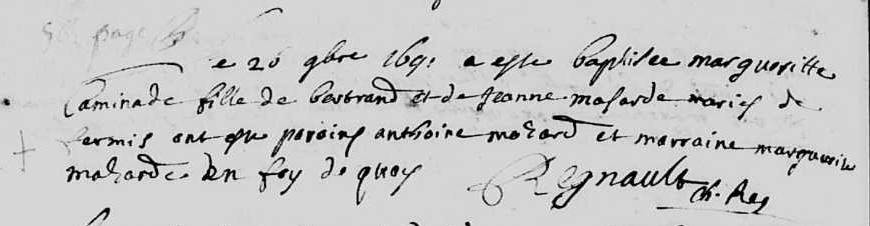 e 26 gbre 1691 a este baptisee margueritte
Caminade fille de bertrand et de Jeanne masarde maries de
fermis ont esté parains anthoine mazard et marraine marguerite
mazarde En foy de quoy
Regnault